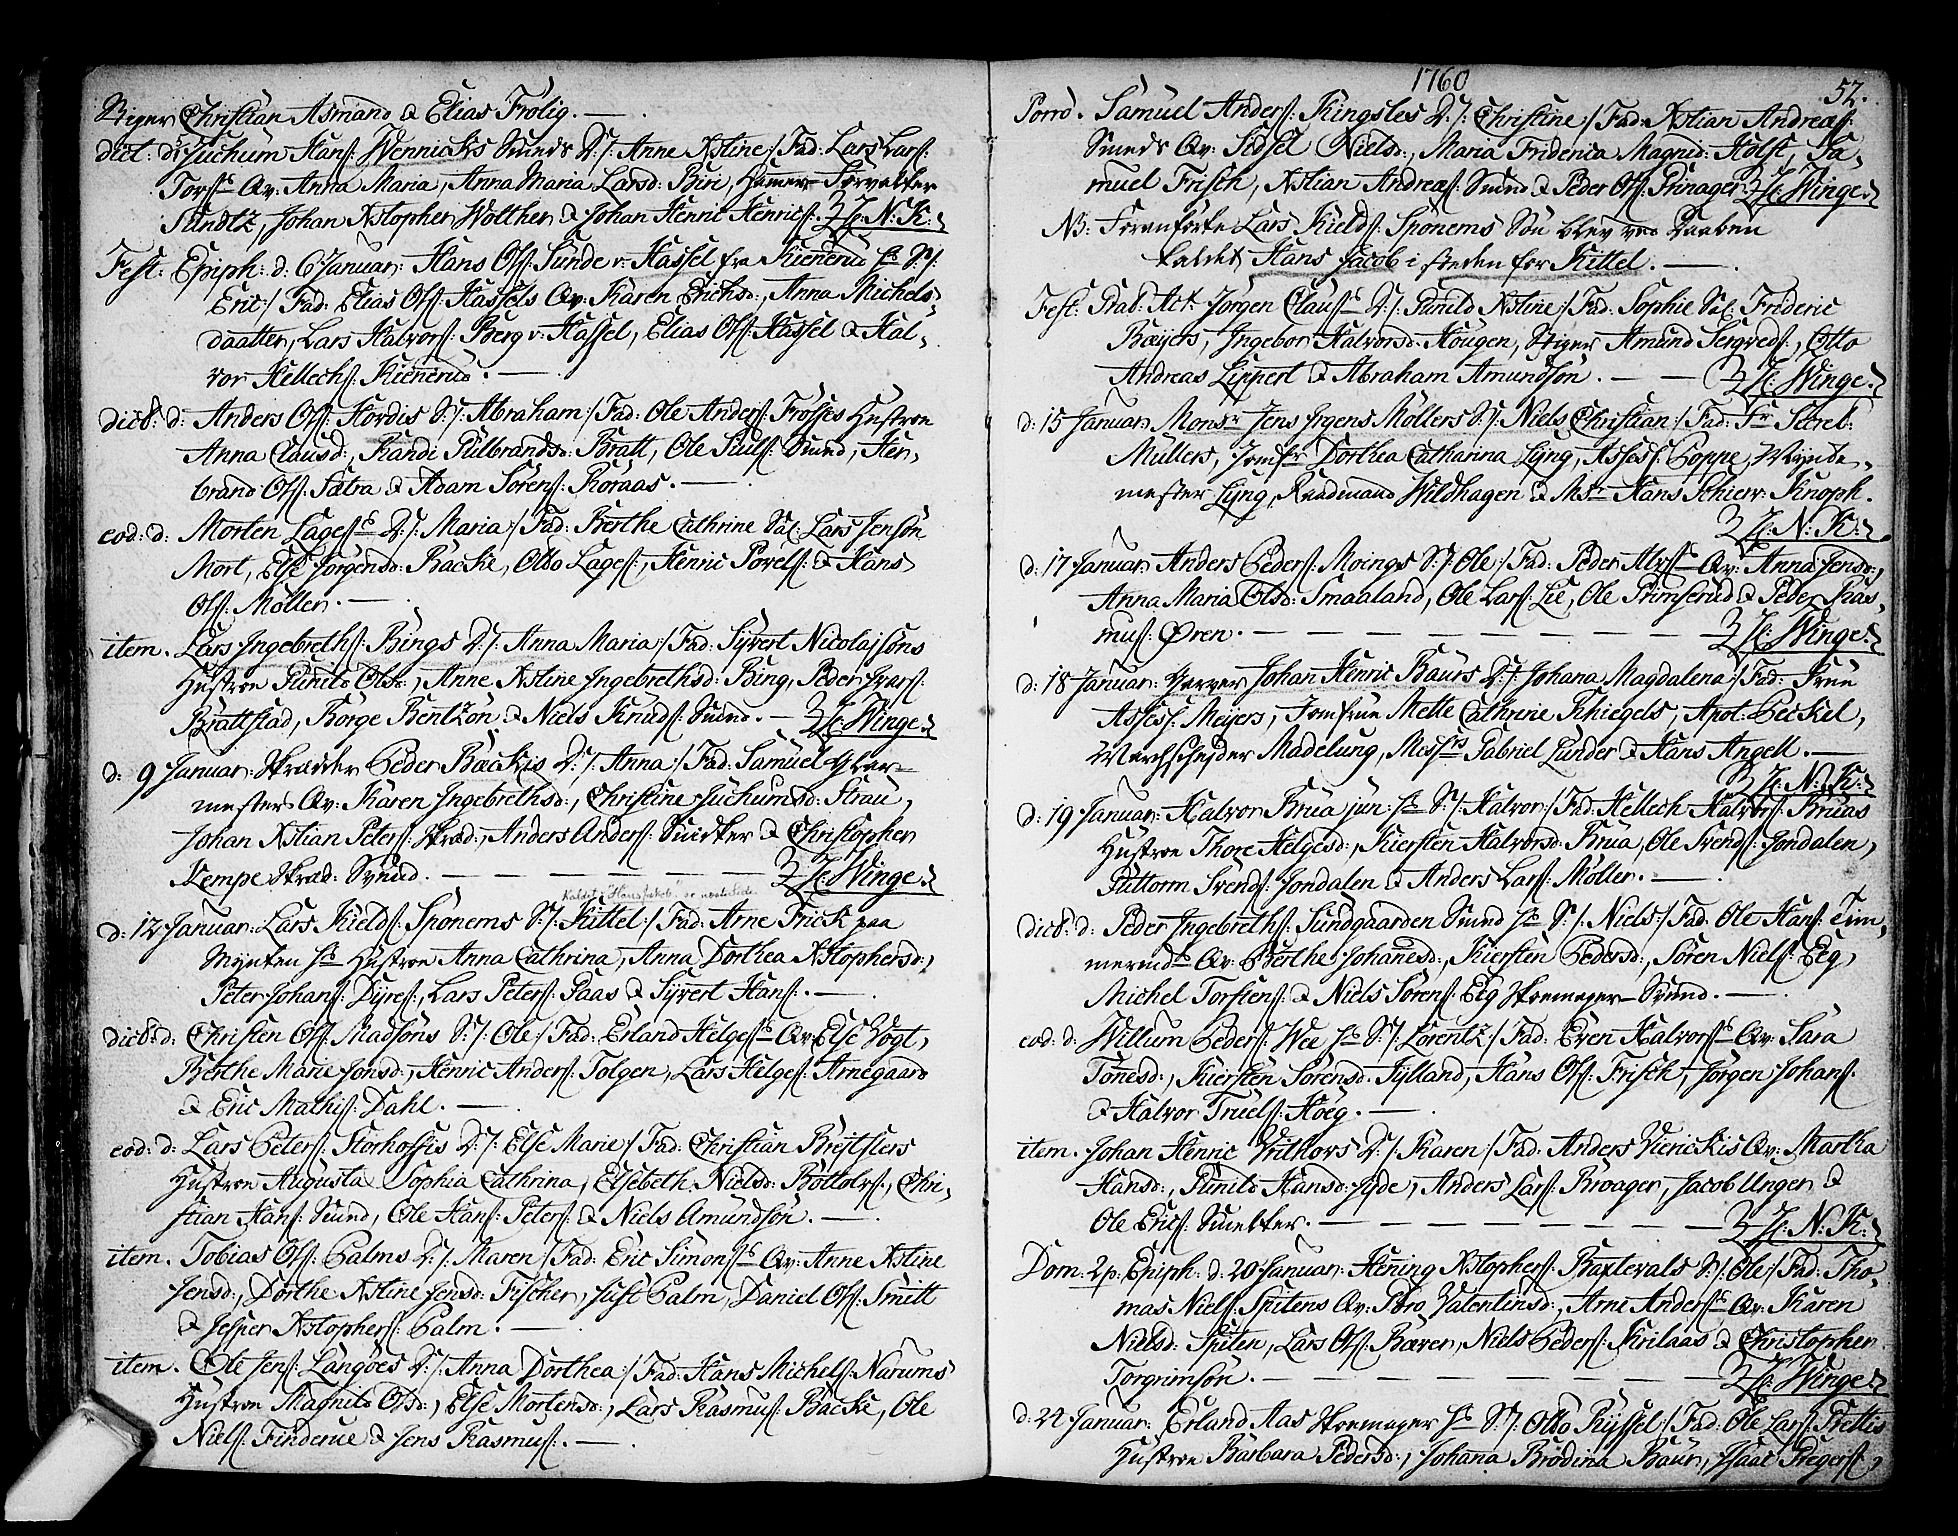 Stiger Christian Asmand & Elias Frolig. —
dict: d: Juchum Hans: Wennicks Smeds D:/: Anne Xstine:/ Fad: Lars Lars:
Torss Qv: Anna Maria, Anna Maria Larsd: Biri, Hamer Forvalter
Sundtz, Johan Xstopher Wolther & Johan Henric Henrics: H: N: K:
Fest: Epiph: d: 6 Januar: Hans Ols: Sunde v: Hassel fra Kienerud hs S:/:
Eric:/ Fad: Elias Ols: Hassels Qv: Karen Erichsd:, Anna Michels
daatter, Lars Halvors: Berg v: Hassel, Elias Ols: Hassel & Hal-
vor Kellechs: Kienerud. —
dict: d: Anders Ols: Hordis S:/: Abraham:/ Fad: Ole Anders: Frosses Hustroe
Anna Clausd:, Randi Gulbrandsd: Bratt, Ole Juuls: Smed, Hen-
brand Ols: Sætra & Adam Sörens: Röraas. —
eod: d: Morten Lagess D:/: Maria:/ Fad: Berthe Cathrine Sal: Lars Jensön
Mort, Else Jörgensd: Backe, Otto Lages:, Henric Povels: & Hans
Ols: Möller. —
item. Lars Ingebreths: Bings D:/: Anna Maria:/ Fad: Syvert Nicolajsöns
Hustroe Gunild Olsd:, Anne Xstine Ingebrethsd: Bing, Peder Ivars:
Brattstad, Börge Bentzön & Niels Knuds: Smed. — H: Winge
d: 9 Januar: Skrædder Peder Backis D:/: Anna:/ Fad: Samuel Glar-
mesters Qv: Karen Ingebrethsd:, Christine Juchumsd: Strau,
Johan Xstian Peters: Skræd:, Anders Anders: Smelter & Christopher
Kempe Skræd: Svend. — — — H: Winge
Kaldet "Hans Jakob" se næste Side
d: 12 Januar: Lars Kields: Sponems S:/: Kittel:/ Fad: Arne Frick paa
Mynten hs Hustroe Anna Cathrina, Anna Dorthea Xstophersd:,
Peter Johans: Dyres, Lars Peters: Paas & Syvert Hans:. —
dict: d: Christen Ols: Madsöns S:/: Ole:/ Fad: Erland Helgess Qv: Else Vogt,
Berthe Marie Jonsd:, Henric Anders: Tolgen, Lars Helges: Arnegaard
& Eric Mathis: Dahl. —
eod: d: Lars Peters: Storhossis D:/: Else Marie:/ Fad: Christian Breitslers
Hustroe Augusta Sophia Cathrina, Elsebeth Nielsd: Bottolvs:, Chri-
stian Hans: Smed, Ole Hans: Peters: & Niels Amundsön. —
item. Tobias Ols: Palms D:/: Maren:/ Fad: Eric Simonss Qv: Anne Xstine
Jensd:, Dorthe Xstine Jensd: Fischer, Just Palm, Daniel Ols: Smitt
& Jesper Xstophers: Palm. —
item. Ole Jens: Langöes D:/: Anna Dorthea:/ Fad: Hans Michels: Narums
Hustroe Magnild Olsd:, Else Mortensd:, Lars Rasmus: Backe, Ole
Niels: Finderue & Jens Rasmus:. —
1760
52.
Porro. Samuel Anders: Kingsles D:/: Christine:/ Fad: Xstian Andreas:
Smeds Qv: Sidsel Nielsd:, Maria Friderica Magnid: Holst, Sa-
muel Frisch, Xstian Andreas: Smed & Peder Ols: H: Winge
NB: Foranförte Lars Kields: Sponems Sön blev ved Daaben
kaldet Hans Jacob i steden for Kittel. —
Fest: Stab: Act: Jörgen Clauss D:/: Gunild Xstine:/ Fad: Sophie Sal: Frideric
Bæyers, Ingebor Halvorsd: Hougen, Stiger Amund Sergveds:, Otto
Andreas Lippert & Abraham Amundsön. — — H: Winge
d: 15 Januar: Monsr Jens Irgens Möllers S:/: Niels Christian:/ Fad: Fr Secret:
Müllers, Jomfr Dorthea Catharina Lyng, Assess: Poppe, Mynde-
mester Lyng, Raadmand Wildhagen & Msr Hans Schierv: Knoph.
H: N: K:
d: 17 Januar: Anders Peders: Moings S:/: Ole:/ Fad: Peder Alfss Qv: Anna Jensd:,
Anna Maria Olsd: Smaaland, Ole Lars: Lie, Ole Grimserud & Peder Ras-
mus: Ören. — — — H: Winge
d: 18 Januar: Garver Johan Henric Baurs D:/: Johana Magdalena:/ Fad: Frue
Assess: Meyers, Jomfrue Melle Cathrine Schlegels, Apot: Peckel,
Marchscheider Madelung, Messrs Gabriel Lunder & Hans Angell. —
H: N: K:
d: 19 Januar: Halvor Brua jun: hs S:/: Halvor:/ Fad: Kellech Halvors: Bruas
Hustroe Thore Helgesd:, Kiersten Halvorsd: Brua, Ole Svends: Jondalen,
Guttorm Svends: Jondalen & Anders Lars: Möller. —
dict: d: Peder Ingebreths: Sundgaarden Smed hs S:/: Niels:/ Fad: Ole Hans: Töm-
mermds Qv: Berthe Johanesd:, Kiersten Pedersd:, Sören Niels: Eeg,
Michel Torstens: & Niels Sörens: Eeg Skoemager Svend. —
eod: d: Willum Peders: Wee hs S:/: Lorentz:/ Fad: Even Halvorss Qv: Sara
Tonesd:, Kiersten Sörensd: Jylland, Hans Ols: Frisch, Jörgen Johans:
& Halvor Truels: Höeg. —
item. Johan Henric Vrithovs D:/: Karen:/ Fad: Anders Vierickis Qv: Martha
Hansd:, Gunild Hansd: Jyde, Anders Lars: Broager, Jacob Unger &
Ole Erics: Smelter. — — — H: N: K:
Dom: 2 p: Epiph: d: 20 Januar: Hening Xstophers: Baxtevals S:/: Ole:/ Fad: Tho-
mas Niels: Spitens Qv: Gbro Valentinsd:, Arne Anderss Qv: Karen
Nielsd: Spiten, Lars Ols: Bæver, Niels Peders: Krilaas & Christopher
Torgrimsön. — — — H: Winge
d: 22 Januar: Erland Aas Skoemager hs S:/: Otto Ryssel:/ Fad: Ole Lars: Prettis
Hustroe Barbara Pedersd:, Johana Brodina Baur, Isaac Gregers:,